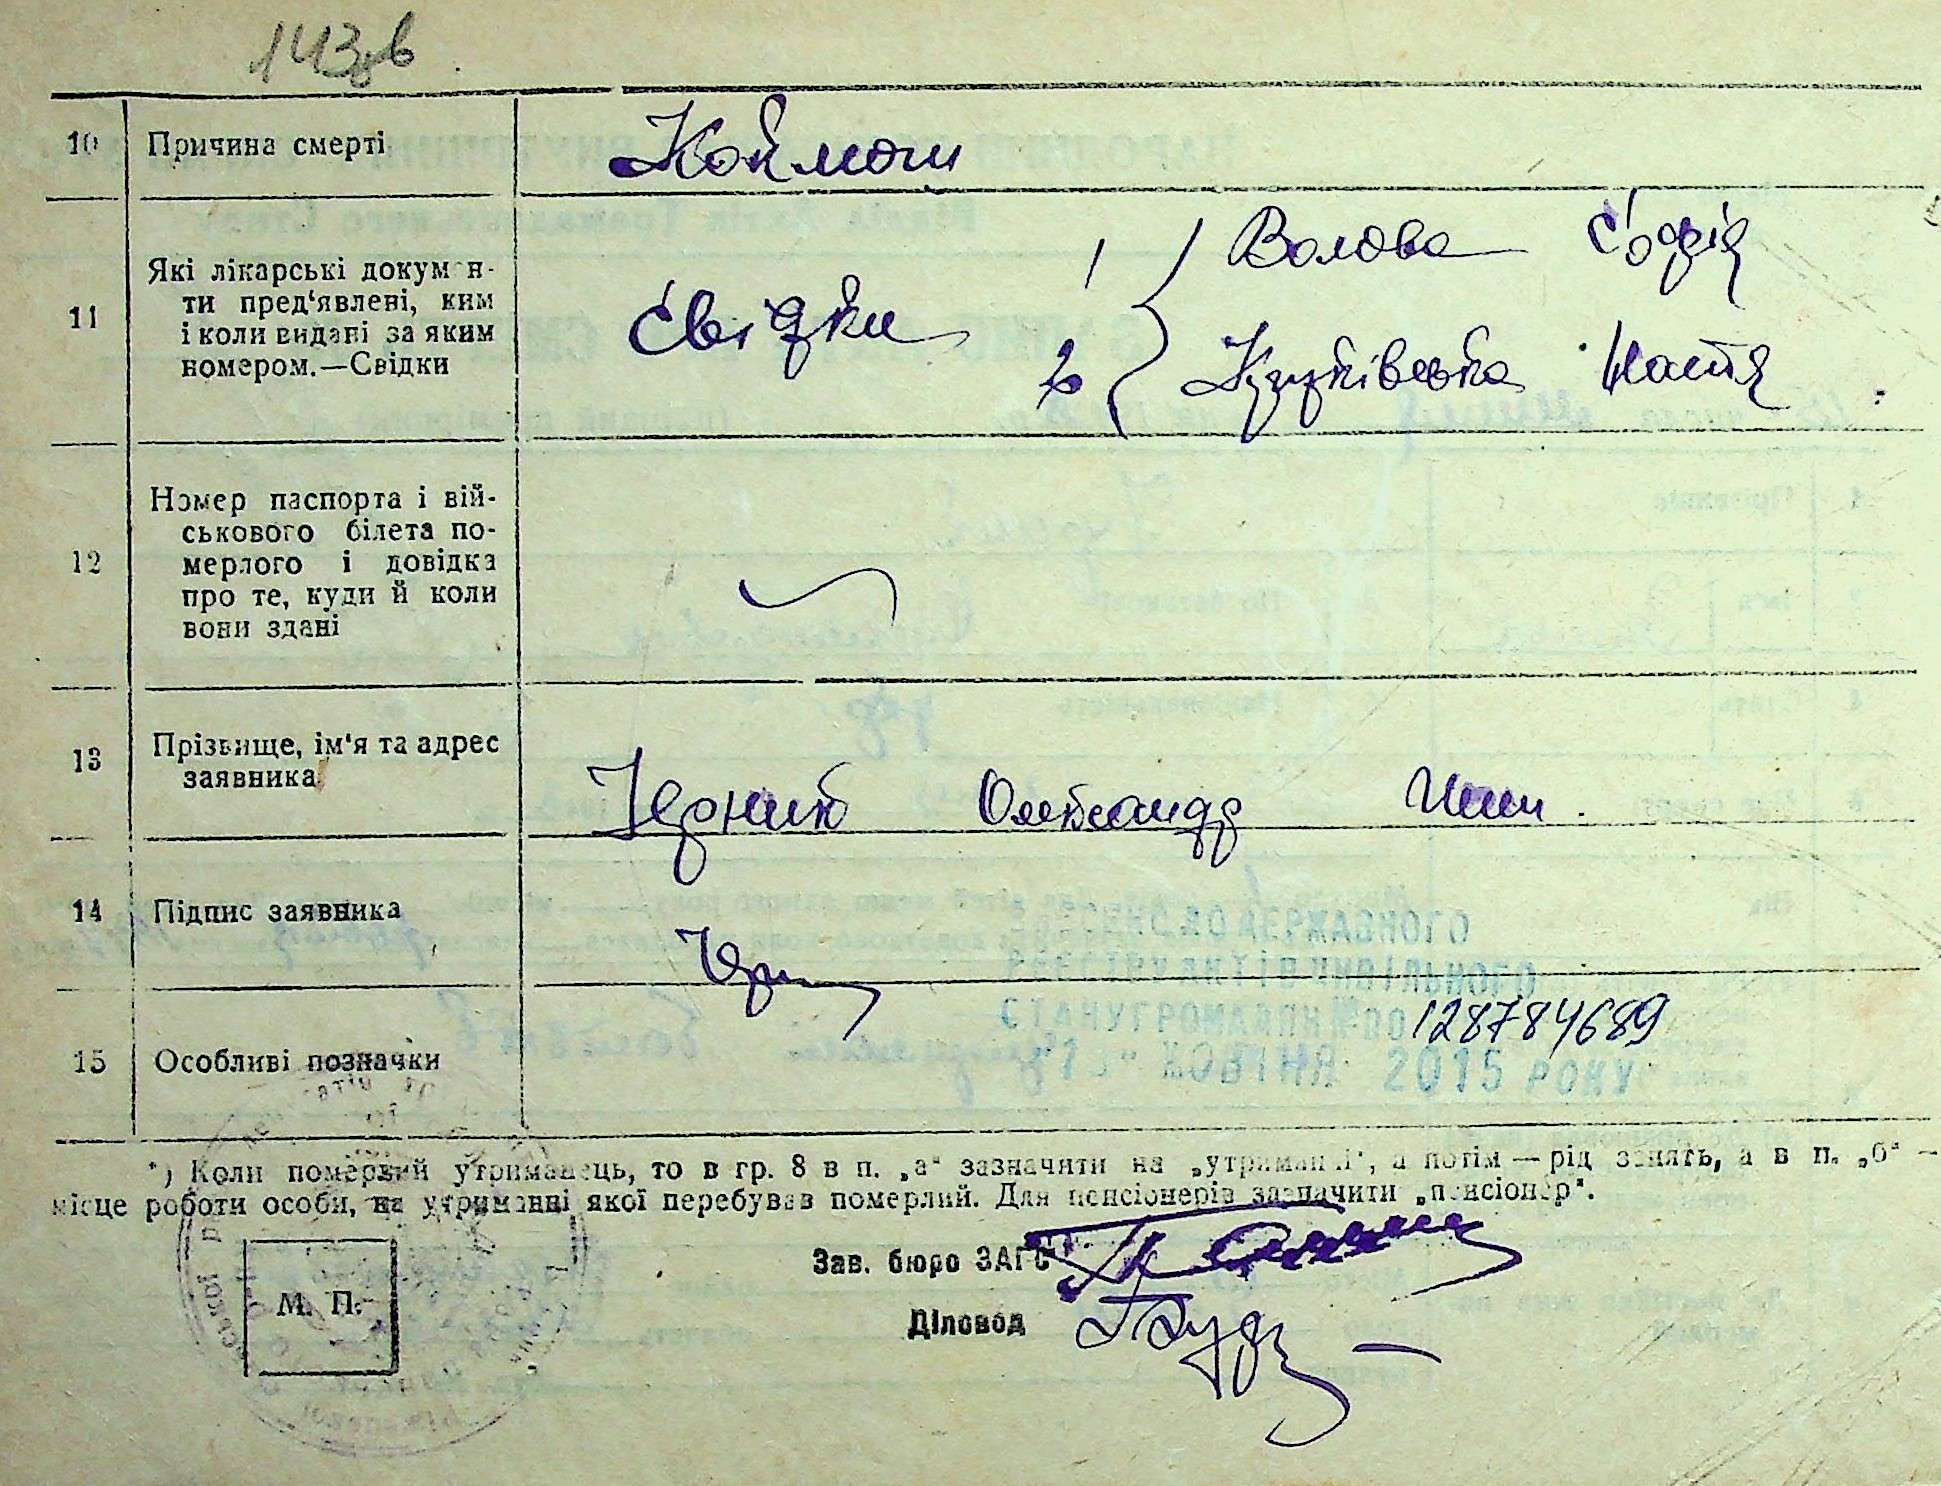 143зв
10 Причина смерті
11 Які лікарські докумен-
ти пред'явлені, ким
і коли видані за яким
номером.—Свідки
Свідки 1 Волова Софія
2 Настя
12 Номер паспорта і вій-
ськового білета по-
мерлого і довідка
про те, куди й коли
вони здані
13 Прізвище, ім'я та адрес
заявника
Черник Олександр
14 Підпис заявника
ВНЕСЕНО ДО ДЕРЖАВНОГО
РЕЄСТРУ АКТІВ ЦИВІЛЬНОГО
СТАНУ ГРОМАДЯН № 00128784689
15 Особливі позначки
ЖОВТНЯ 2015 РОКУ
*) Коли померлий утриманець, то в гр. 8 в п. „а" зазначити на „утриманні", а потім — рід занять, а в п. „б" —
місце роботи особи, на утриманні якої перебував померлий. Для пенсіонерів зазначити „пенсіонер".
Зав. бюро ЗАГС
М. П.
Діловод